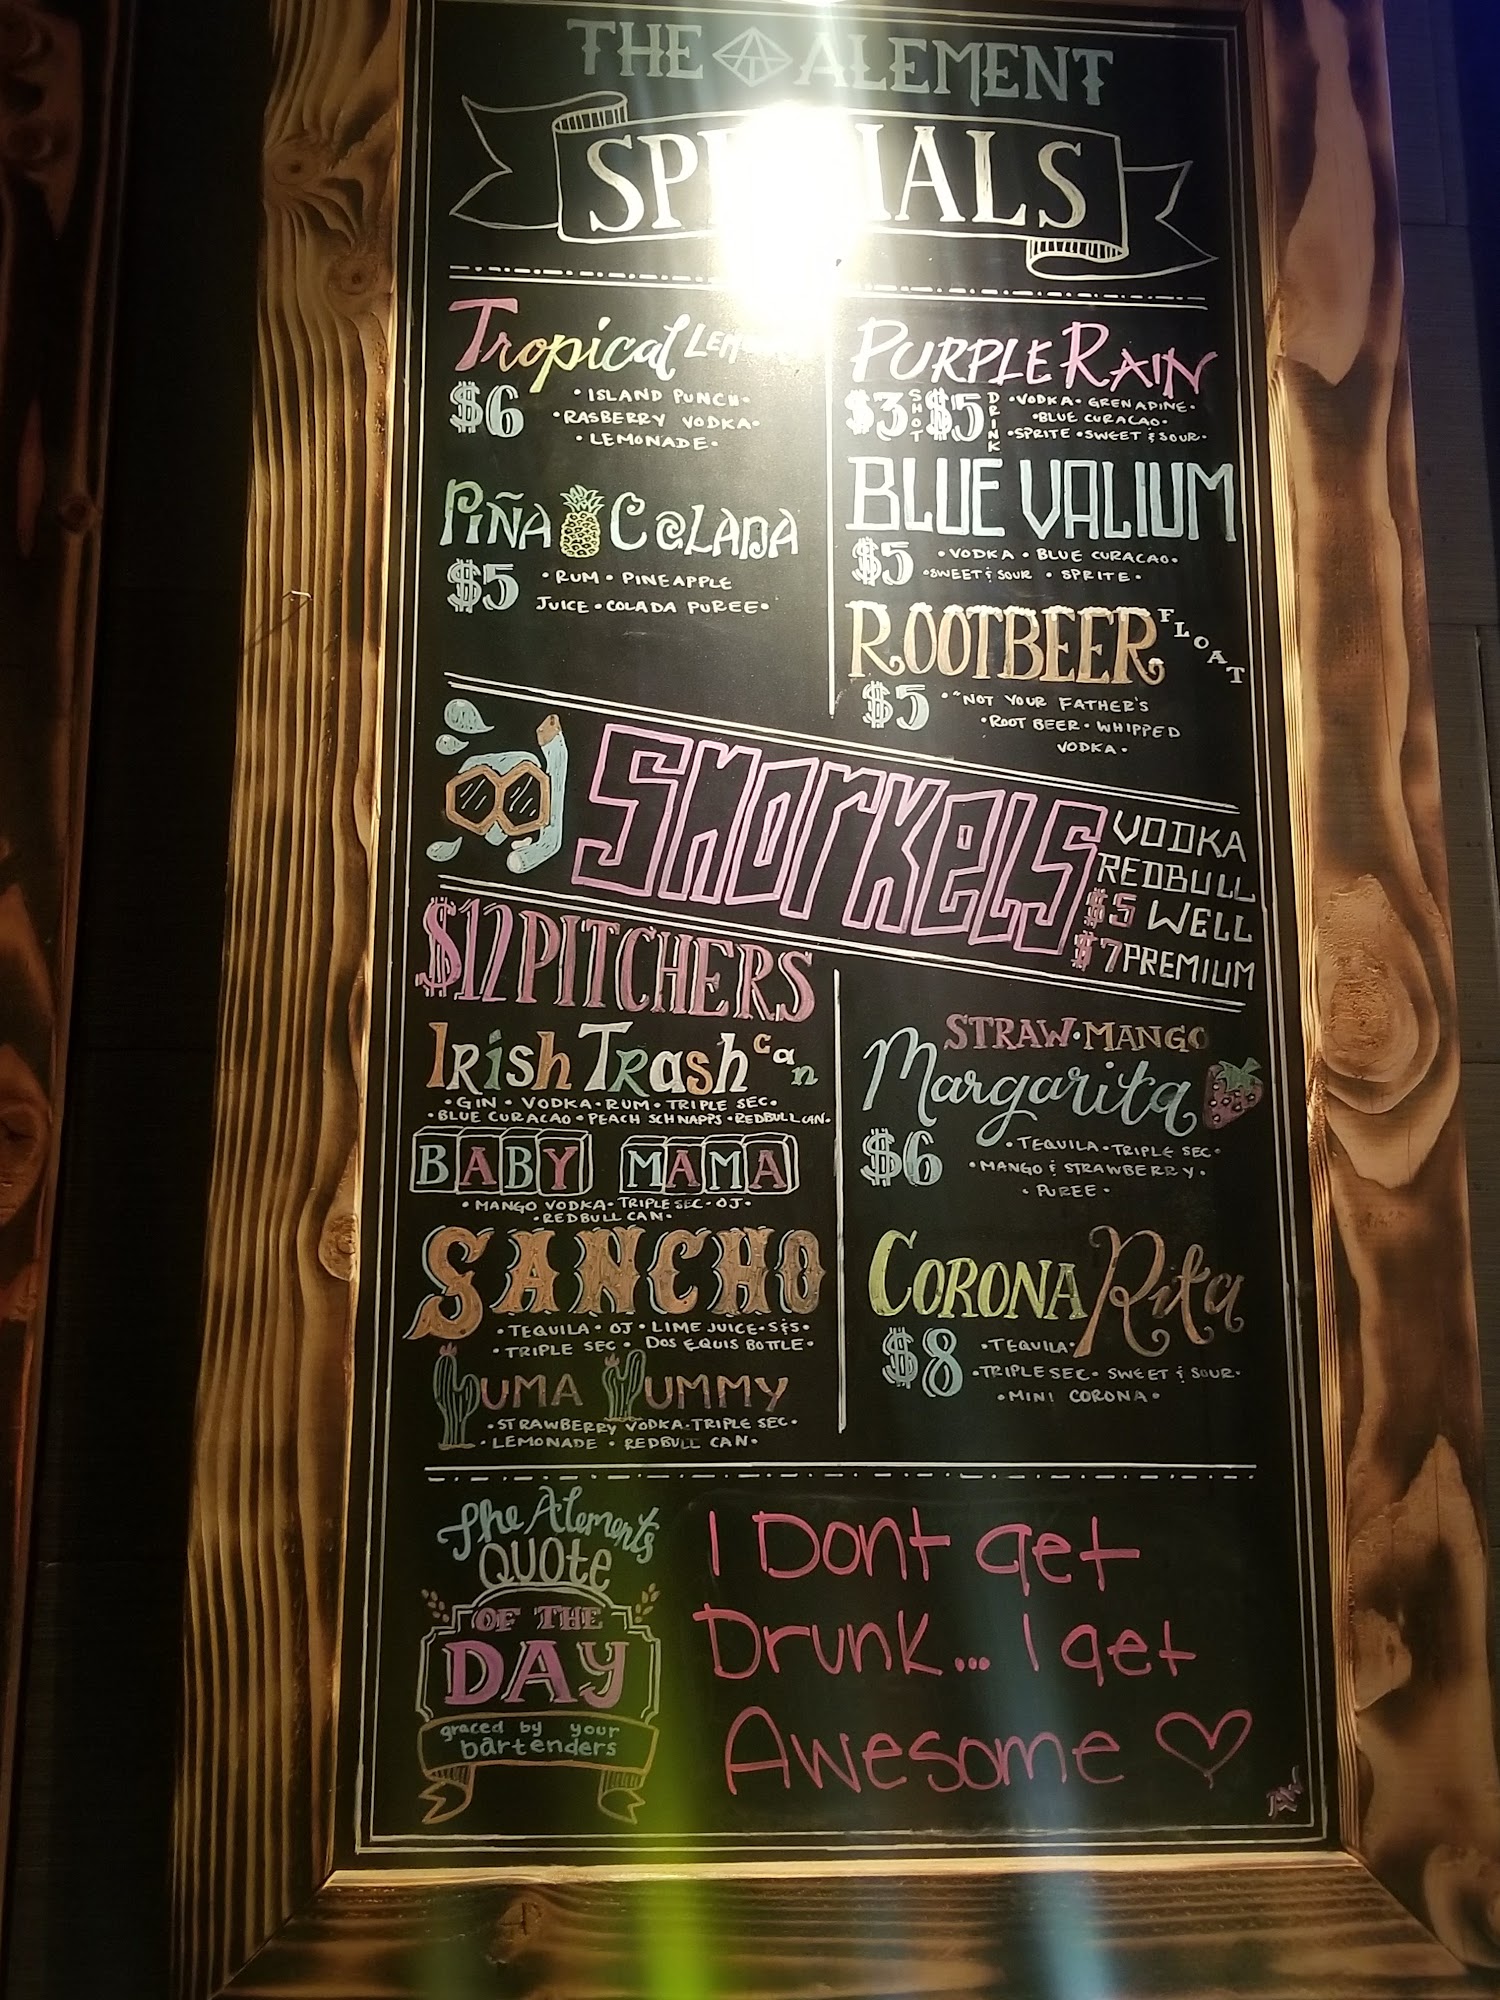 THE ALEMENT
Tropical
$6
• ISLAND PUNCH •
• RASBERRY VODKA •
• LEMONADE •
PIÑA COLADA
$5
• RUM • PINEAPPLE
JUICE • COLADA PUREE •
PURPLE RAIN
$3 SHOT $5 DRINK
• VODKA • GRENADINE •
• BLUE CURACAO •
• SPRITE • SWEET & SOUR •
BLUE VALIUM
$5
• VODKA • BLUE CURACAO •
• SWEET & SOUR • SPRITE •
ROOTBEER FLOAT
$5
• "NOT YOUR FATHER'S
• ROOT BEER • WHIPPED
VODKA •
SNORKELS
VODKA
REDBULL
$5 WELL
$7 PREMIUM
$12 PITCHERS
IRish TRash can
• GIN • VODKA • RUM • TRIPLE SEC •
• BLUE CURACAO • PEACH SCHNAPPS • REDBULL CAN •
BABY MAMA
• MANGO VODKA • TRIPLE SEC • OJ •
• REDBULL CAN •
SANCHO
• TEQUILA • OJ • LIME JUICE • S&S •
• TRIPLE SEC • DOS EQUIS BOTTLE •
YUMA YUMMY
• STRAWBERRY VODKA • TRIPLE SEC •
• LEMONADE • REDBULL CAN •
STRAW • MANGO
Margarita
$6
• TEQUILA • TRIPLE SEC •
• MANGO & STRAWBERRY •
• PUREE •
CORONA Rita
$8
• TEQUILA •
• TRIPLE SEC • SWEET & SOUR •
• MINI CORONA •
The Alements
QUOte
OF THE
DAY
graced by your
bartenders
I Dont get
Drunk... I get
Awesome ♡